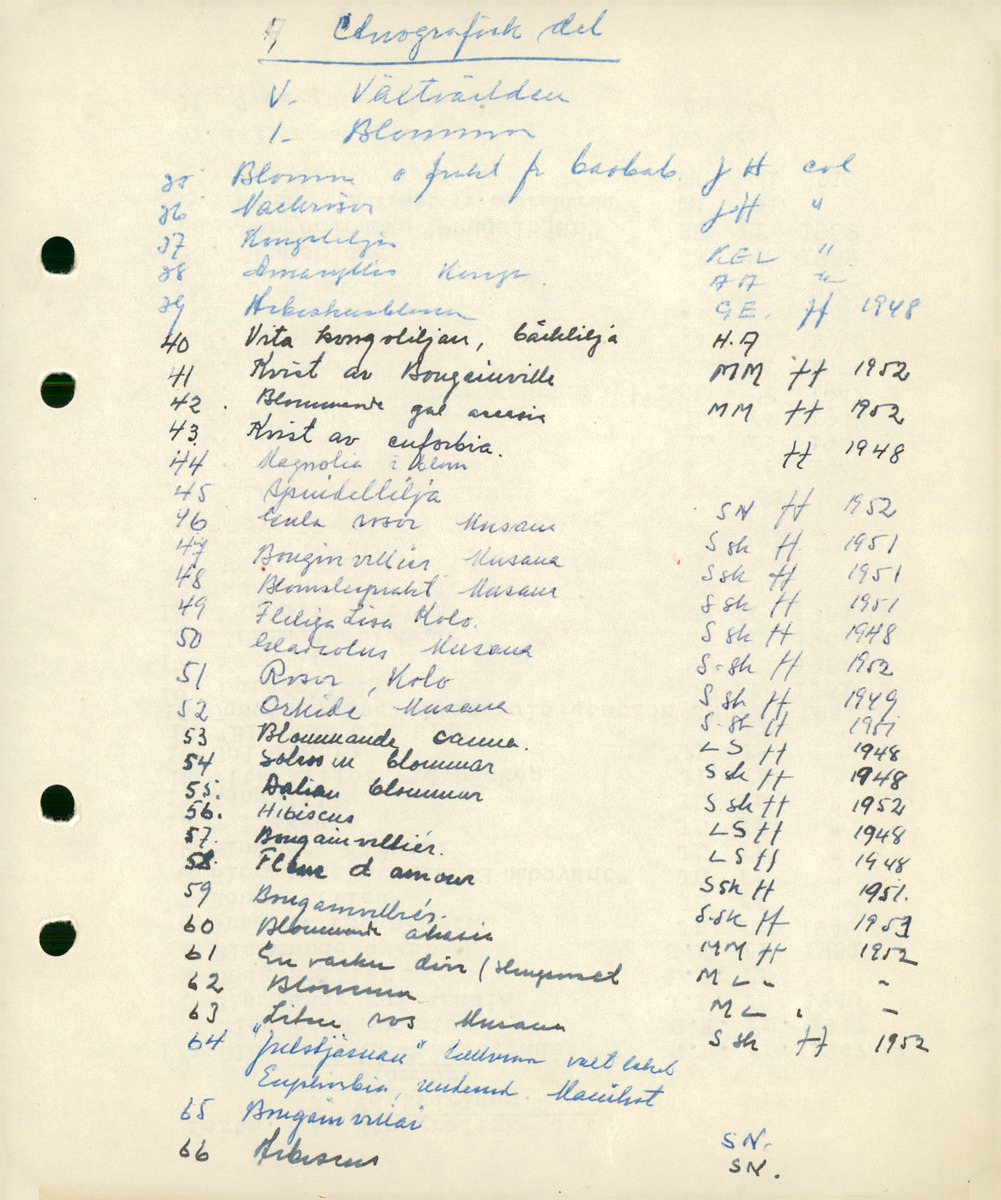 Etnografisk del
V. Växtvärlden
1. Blommor
35 Blomma o frukt fr baobab. J H col
36 Näckrosor J H "
37 Kongolilja KEL "
38 Amaryllis Kongo AA "
39 Hibiskusblomma G E. H 1948
40 Vita kongoliljan, bäcklilja H.A
41 Kvist av Bougainville MM H 1952
42. Blommande gul acacia MM H 1952
43. Kvist av euforbia. H 1948
44 Magnolia i blom
45 Spindellilja SN H 1952
46 Gula rosor Musana S sk H 1951
47 Bouginvilliér Musana S sk H 1951
48 Blomsterprakt Musana S sk H 1951
49 Flitiga Lisa Kolo. S sk H 1948
50 Gladiolus Musana S-sk H 1952
51 Rosor, Kolo S sk H 1949
52 Orkidé Musana S-sk H 1951
53 Blommande canna. LS H 1948
54 Solros m blommor S sk H 1948
55. Dalian blommar S sk H 1952
56. Hibiscus LS H 1948
57. Bougainvilliér. LS H 1948
58. Fleur d amour S sk H 1951.
59 Bougainvilliér. S.sk H 1953
60 Blommande akacia MM H 1952
61 En vacker dörr ( M L " "
62 Blomma M L " "
63 Liten ros Musana S sk H 1952
64 "Julstjärnan"
Euphorbia, Manihot
65 Bougainvillai SN.
66 Hibiscus SN.